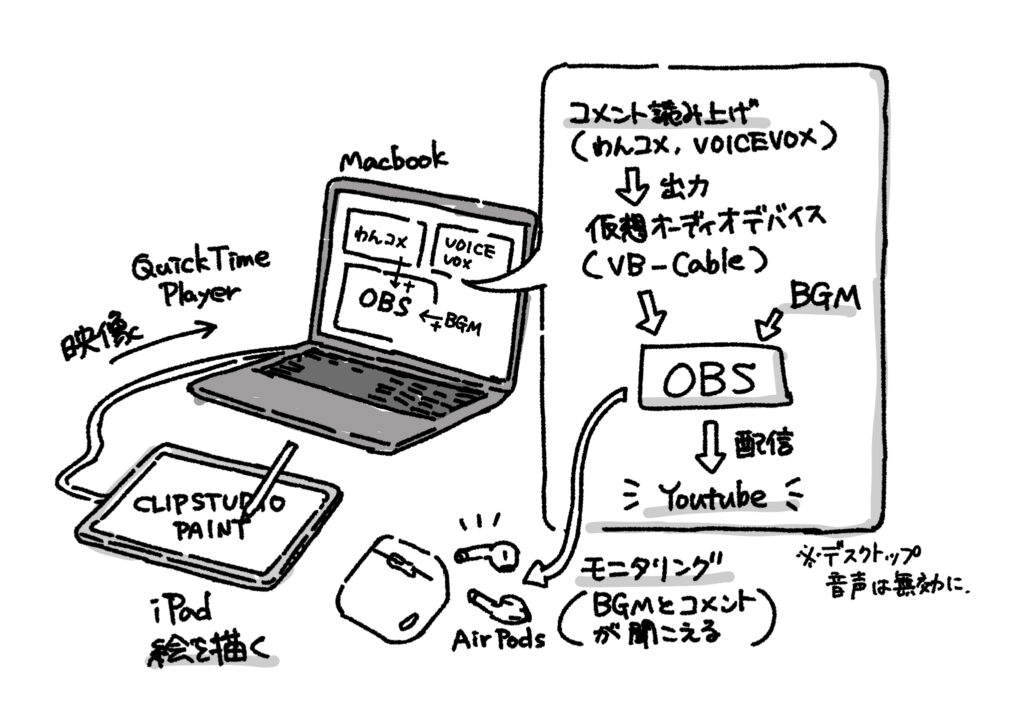 Macbook
わんコメ
VOICE
VOX
+
OBS
+
BGM
QuickTime
Player
映像
CLIP STUDIO
PAINT
iPad
絵を描く
コメント読み上げ
(わんコメ, VOICEVOX)
出力
仮想オーディオデバイス
(VB-Cable)
BGM
OBS
配信
Youtube
※デスクトップ
音声は無効に.
モニタリング
(BGMとコメント
が聞こえる)
AirPods